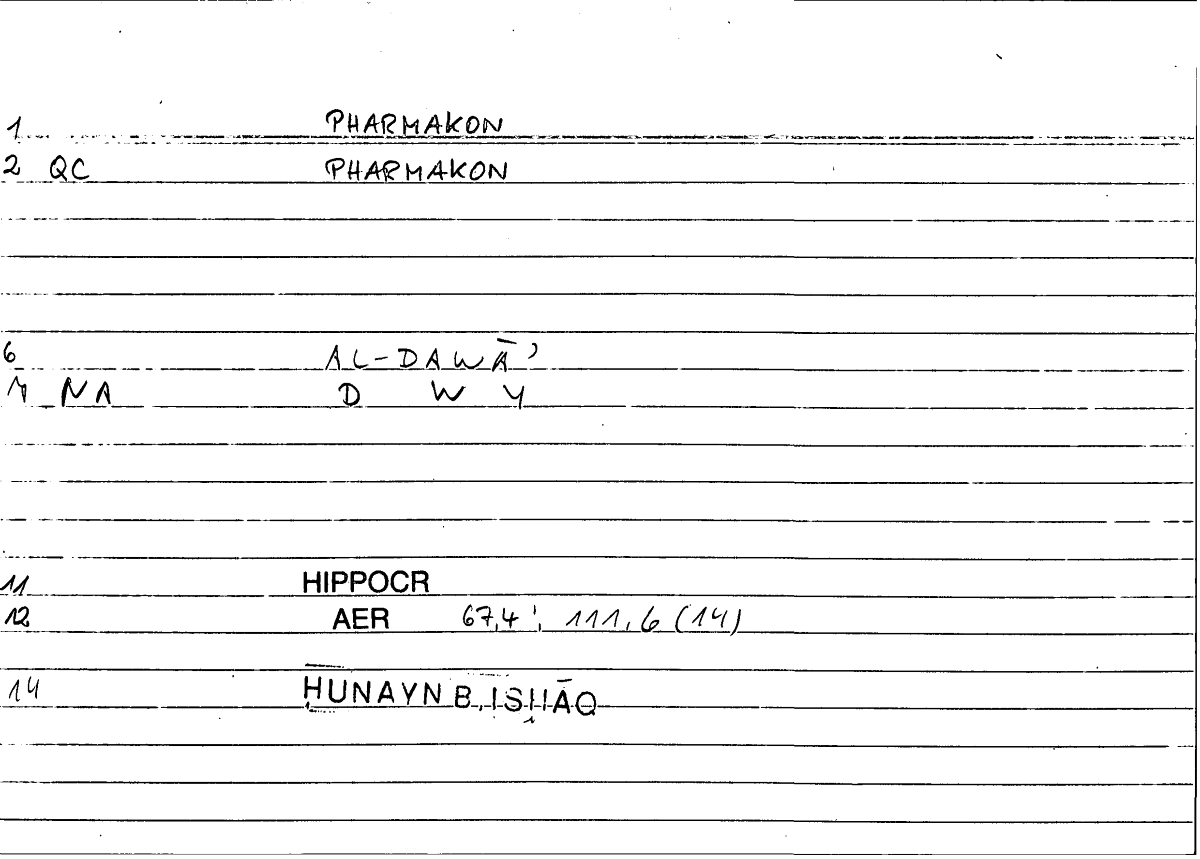 1 PHARMAKON
2 QC PHARMAKON
6 AL-DAWĀʾ
7 NA D W Y
11 HIPPOCR
12 AER 67,4 ; 111,6 (14)
14 ḤUNAYN B. ISḤĀQ